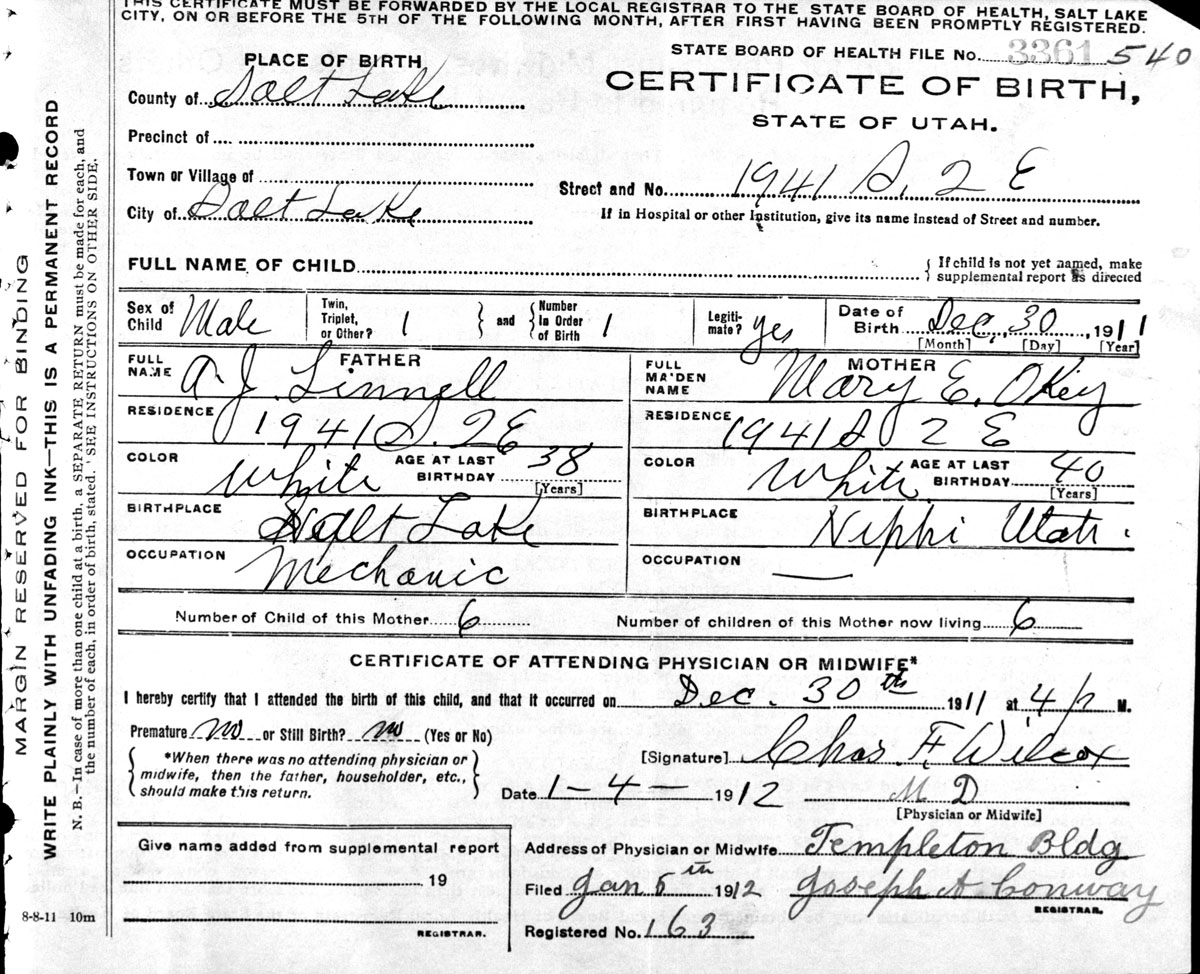 THIS CERTIFICATE MUST BE FORWARDED BY THE LOCAL REGISTRAR TO THE STATE BOARD OF HEALTH, SALT LAKE
CITY, ON OR BEFORE THE 5TH OF THE FOLLOWING MONTH, AFTER FIRST HAVING BEEN PROMPTLY REGISTERED.
STATE BOARD OF HEALTH FILE No. 3361 540
PLACE OF BIRTH
CERTIFICATE OF BIRTH,
STATE OF UTAH.
County of Salt Lake
Precinct of
Town or Village of
Street and No. 1941 S. 2 E
City of Salt Lake
If in Hospital or other Institution, give its name instead of Street and number.
FULL NAME OF CHILD
{ If child is not yet named, make
supplemental report as directed
Sex of Child Male
Twin, Triplet, or Other? 1 } and { Number in Order of Birth 1
Legiti- mate? yes
Date of Birth Dec. 30, 1911
[Month] [Day] [Year]
FATHER
FULL NAME A. J. Linnell
RESIDENCE 1941 S. 2E
COLOR White AGE AT LAST BIRTHDAY 38 [Years]
BIRTHPLACE Salt Lake
OCCUPATION Mechanic
MOTHER
FULL MAIDEN NAME Mary E. Okey
RESIDENCE 1941 S 2 E
COLOR White AGE AT LAST BIRTHDAY 40 [Years]
BIRTHPLACE Nephi Utah.
OCCUPATION —
Number of Child of this Mother 6 Number of children of this Mother now living 6
CERTIFICATE OF ATTENDING PHYSICIAN OR MIDWIFE*
I hereby certify that I attended the birth of this child, and that it occurred on Dec. 30th 1911 at 4 P M.
Premature no or Still Birth? no (Yes or No)
[Signature] Chas. F Wilcox
{ *When there was no attending physician or
midwife, then the father, householder, etc.,
should make this return. }
Date 1-4- 1912 M D
[Physician or Midwife]
Give name added from supplemental report
19
REGISTRAR.
Address of Physician or Midwife Templeton Bldg
Filed Jan 5th 1912 Joseph A Conway
REGISTRAR.
Registered No. 163
8-8-11 10m
MARGIN RESERVED FOR BINDING
WRITE PLAINLY WITH UNFADING INK—THIS IS A PERMANENT RECORD
N. B.—In case of more than one child at a birth, a SEPARATE RETURN must be made for each, and
the number of each, in order of birth, stated. SEE INSTRUCTIONS ON OTHER SIDE.